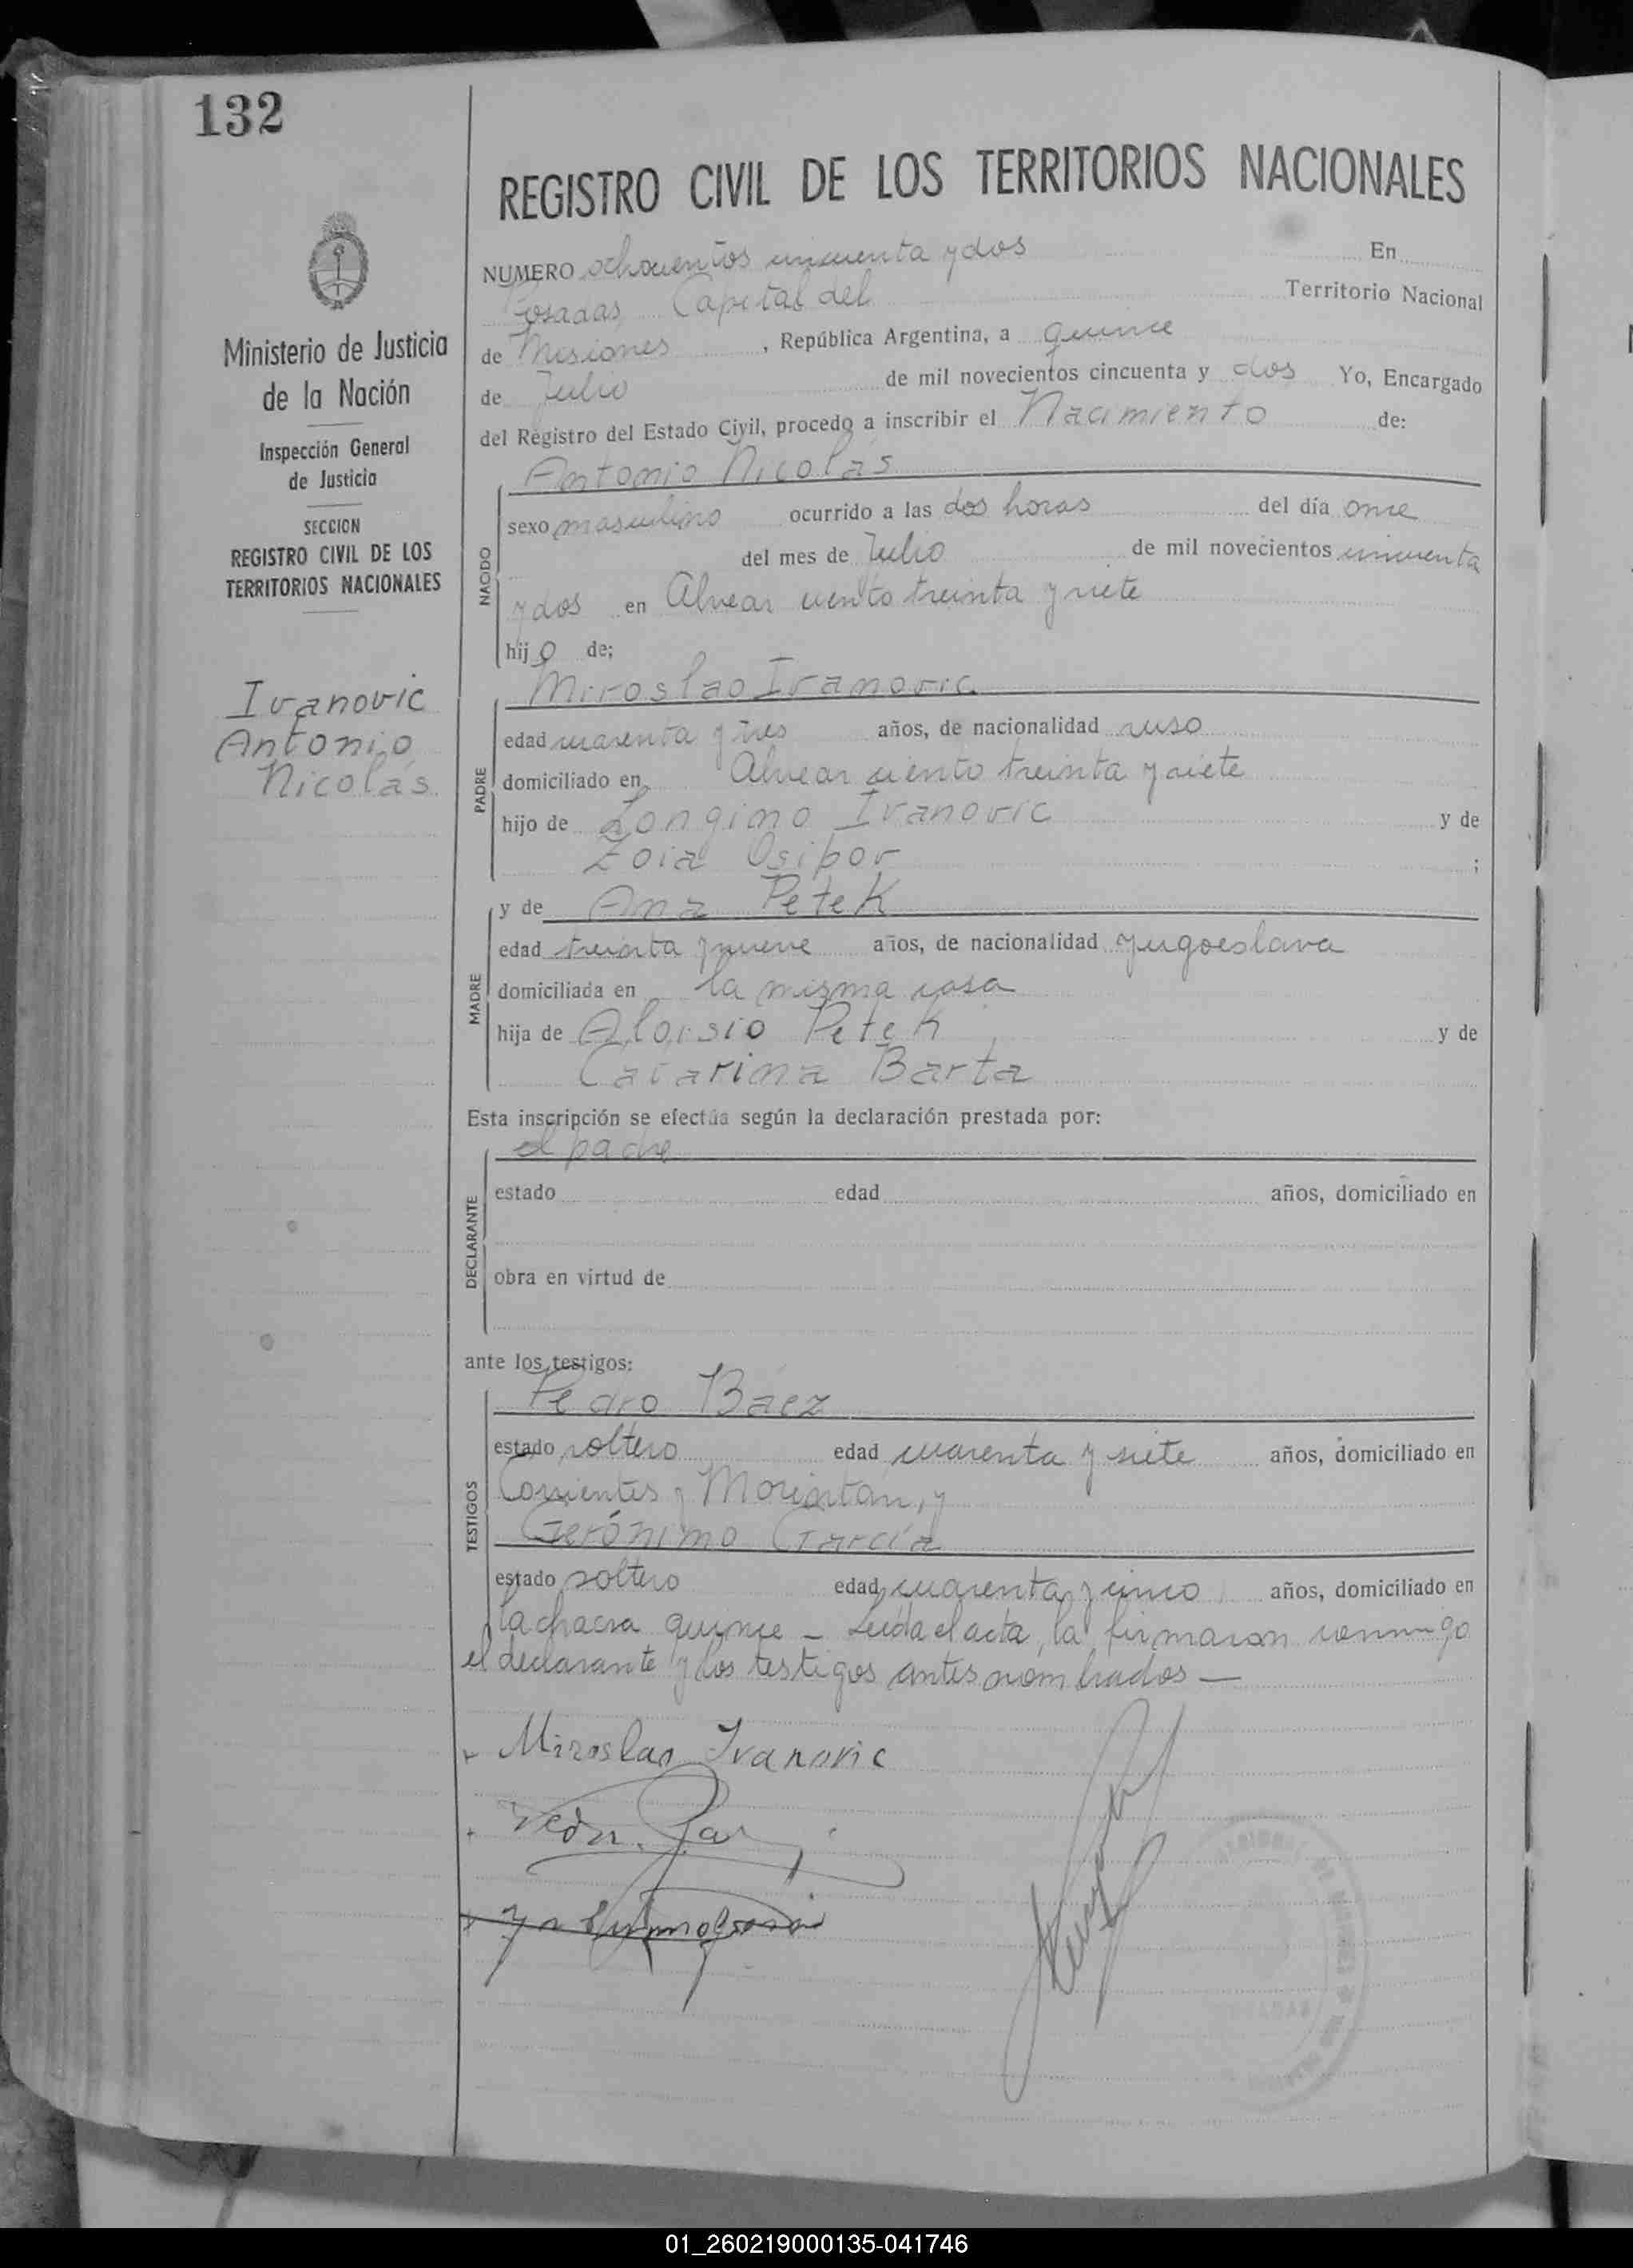 132
REGISTRO CIVIL DE LOS TERRITORIOS NACIONALES
Ministerio de Justicia
de la Nación
Inspección General
de Justicia
SECCION
REGISTRO CIVIL DE LOS
TERRITORIOS NACIONALES
Ivanovic
Antonio
Nicolás
NUMERO ochocientos cincuenta y dos En
Posadas Capital del Territorio Nacional
de Misiones, República Argentina, a quince
de Julio de mil novecientos cincuenta y dos Yo, Encargado
del Registro del Estado Civil, procedo a inscribir el Nacimiento de:
NACIDO
Antonio Nicolás
sexo masculino ocurrido a las dos horas del día once
del mes de Julio de mil novecientos cincuenta
y dos en Alvear ciento treinta y siete
hijo de;
PADRE
Miroslao Ivanovic
edad cuarenta y tres años, de nacionalidad ruso
domiciliado en Alvear ciento treinta y siete
hijo de Longino Ivanovic y de
Zoia Osipov ;
MADRE
y de Ana Petek
edad treinta y nueve años, de nacionalidad yugoeslava
domiciliada en la misma casa
hija de Aloisio Petek y de
Catarina Barta
Esta inscripción se efectúa según la declaración prestada por:
DECLARANTE
el padre
estado edad años, domiciliado en
obra en virtud de
ante los testigos:
TESTIGOS
Pedro Báez
estado soltero edad cuarenta y siete años, domiciliado en
Corrientes y y
Gerónimo García
estado soltero edad cuarenta y cinco años, domiciliado en
la chacra quince – Leida el acta, la firmaron conmigo
el declarante y los testigos antes nombrados —
Miroslao Ivanovic
01_260219000135-041746